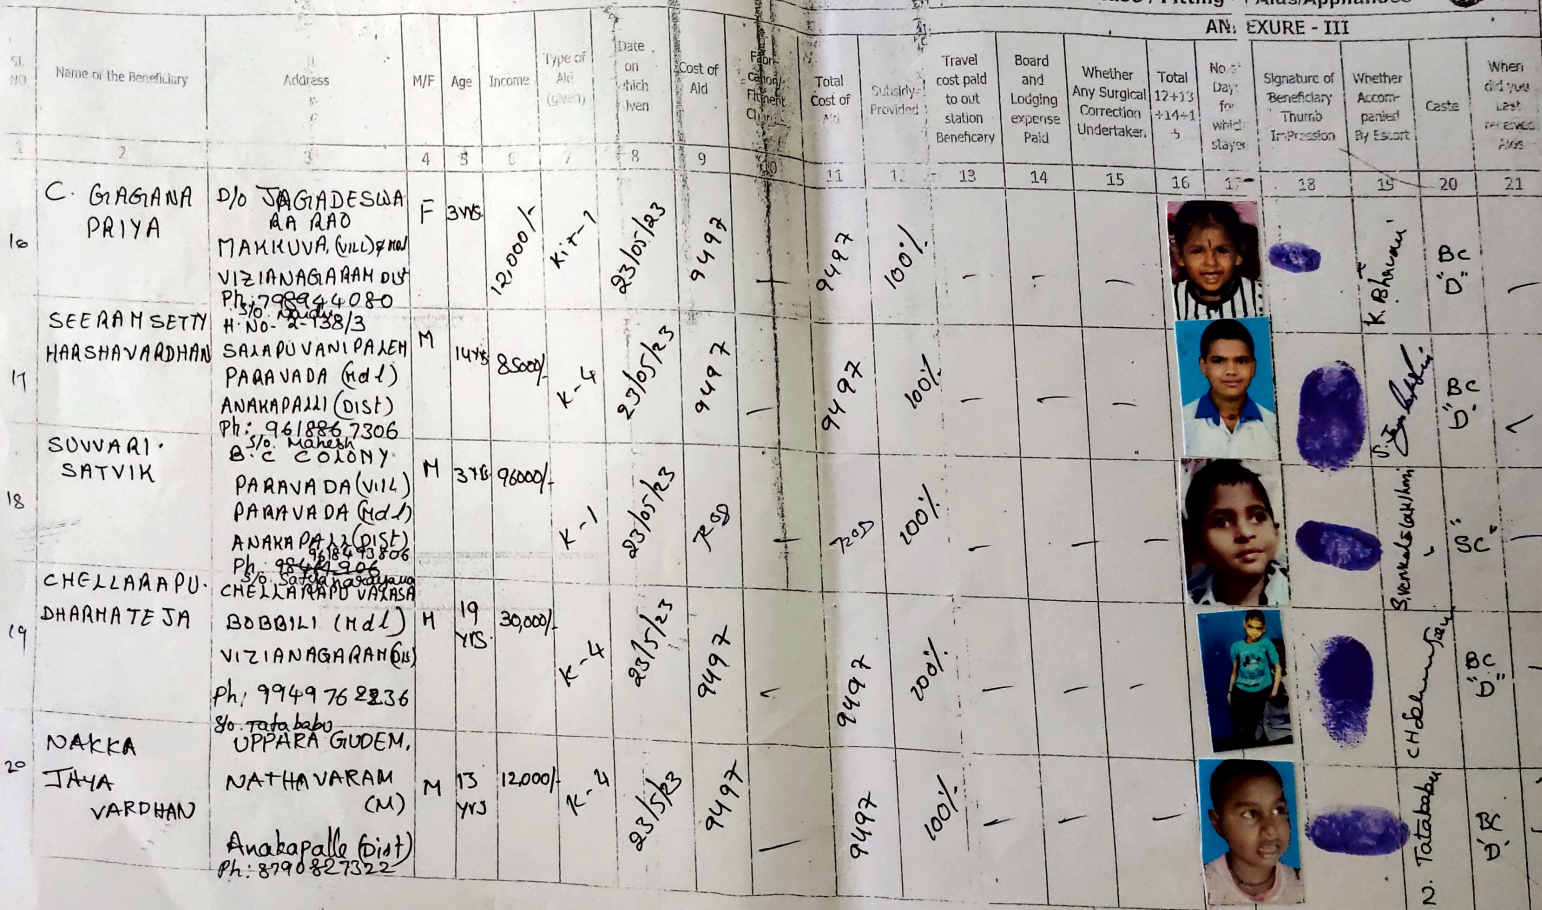 Aids/Appliances
ANNEXURE - III
Sl. NO
Name of the Beneficiary
Address
M/F
Age
Income
Type of Aid (given)
Date on which given
Cost of Aid
Total Cost of Aid
Subsidy Provided
Travel cost paid to out station Beneficary
Board and Lodging expense Paid
Whether Any Surgical Correction Undertaken
Total 12+13+14+15
No. of Days for which stayed
Signature of Beneficiary Thumb Impression
Whether Accompanied By Escort
Caste
When did you Last received Aids
1 2 3 4 5 6 7 8 9 10 11 12 13 14 15 16 17 18 19 20 21
16
C. GAGANA
PRIYA
D/o JAGADESWA
RA RAO
MAKKUVA, (VILL) & Mdl
VIZIANAGARAM DIST
Ph: 798944080
F
3yrs
12,000/-
Kit-1
23/05/23
9497
9497
100%
K. Bhavani
BC
"D"
17
SEERAMSETTY
HARSHAVARDHAN
S/o. Naidu
H.No- 2-138/3
SALAPUVANIPALEM
PARAVADA (Mdl)
ANAKAPALLI (DIST)
Ph: 9618867306
M
14yrs
85000/-
K-4
23/05/23
9497
9497
100%
BC
"D"
18
SUVVARI.
SATVIK
S/o. Mahesh
B.C COLONY
PARAVADA (VILL)
PARAVADA (Mdl)
ANAKAPALLI (DIST)
9618493806
Ph.
M
3yrs
96000/-
K-1
23/05/23
100%
S. Venkata Lakshmi
"SC"
19
CHELLARAPU.
DHARMATEJA
S/o Satyanarayana
CHELLARAPU VALASA
BOBBILI (Mdl)
VIZIANAGARAM (Dis)
Ph: 9949762236
M
19
yrs
30,000/-
K-4
23/5/23
9497
9497
100%
BC
"D"
20
NAKKA
JAYA
VARDHAN
S/o. Tatababu
UPPARA GUDEM,
NATHAVARAM
(M)
Anakapalle (Dist)
Ph: 8790827322
M
13
yrs
12,000/-
K-4
23/5/23
9497
9497
100%
N. Tatababu
BC
'D'